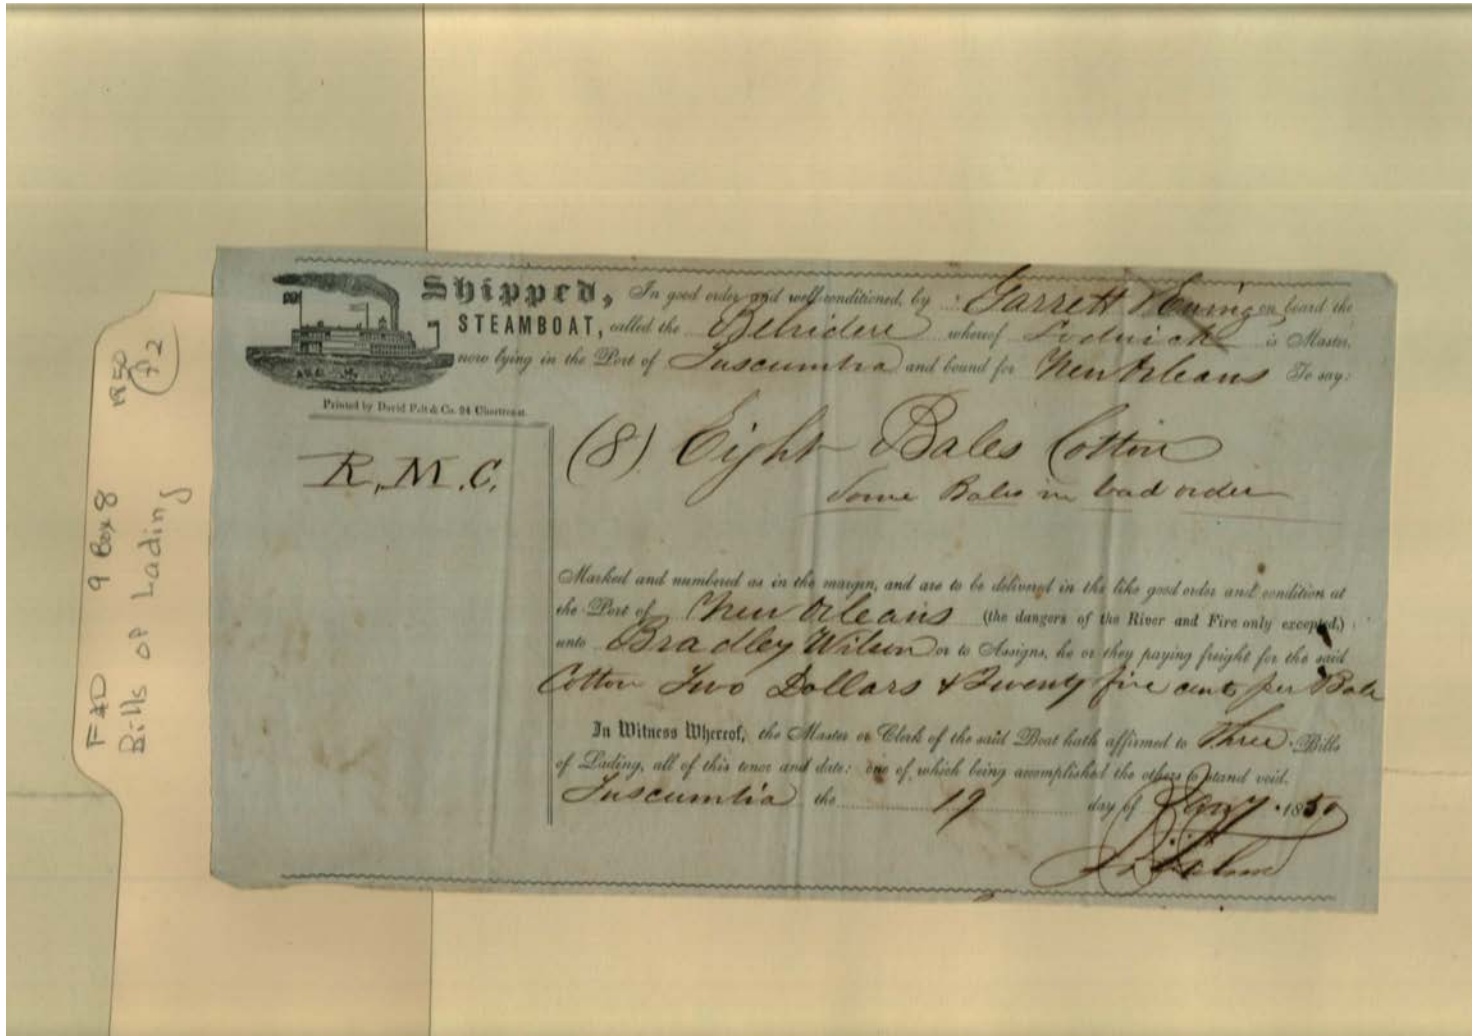 Shipped, In good order and well-conditioned, by Garrett on board the
STEAMBOAT, called the Belvidere whereof is Master,
now lying in the Port of Tuscumbia and bound for New Orleans To say:
Printed by David Felt & Co. 24 Chartres st.
R.M.C.
(8) Eight Bales Cotton
Some Bales in bad order
Marked and numbered as in the margin, and are to be delivered in the like good order and condition at
the Port of New Orleans (the dangers of the River and Fire only excepted,)
unto Bradley Wilson or to Assigns, he or they paying freight for the said
Cotton Two Dollars & Twenty five cents per Bale
In Witness Whereof, the Master or Clerk of the said Boat hath affirmed to Three Bills
of Lading, all of this tenor and date: one of which being accomplished the others to stand void.
Tuscumbia the 19 day of Jany 1850
F&D 9 Box 8 1850
P 2
Bills of Lading